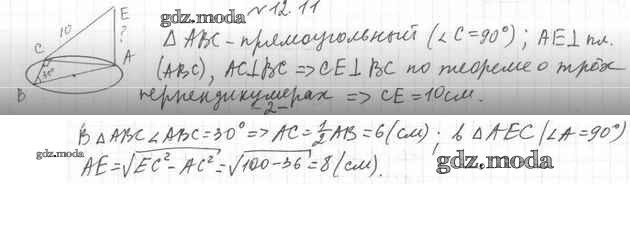 №12.11
10
E
gdz.moda
?
C
30°
A
B
△ABC - прямоугольный (∠C=90°); AE⊥пл.
(ABC), AC⊥BC ⇒ CE⊥BC по теореме о трёх
перпендикулярах ⇒ CE=10см.
-2-
В △ABC ∠ABC=30° ⇒ AC=½AB=6(см); в △AEC (∠A=90°)
gdz.moda
AE=√EC²-AC²=√100-36=8(см).
gdz.moda